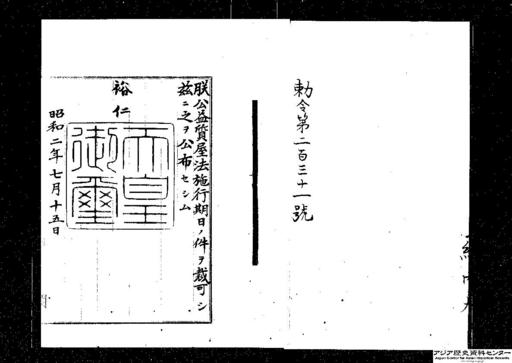 勅令第二百三十一號
朕公益質屋法施行期日ノ件ヲ裁可シ
茲ニ之ヲ公布セシム
裕仁
天皇
御璽
昭和二年七月十五日
アジア歴史資料センター
Japan Center for Asian Historical Records